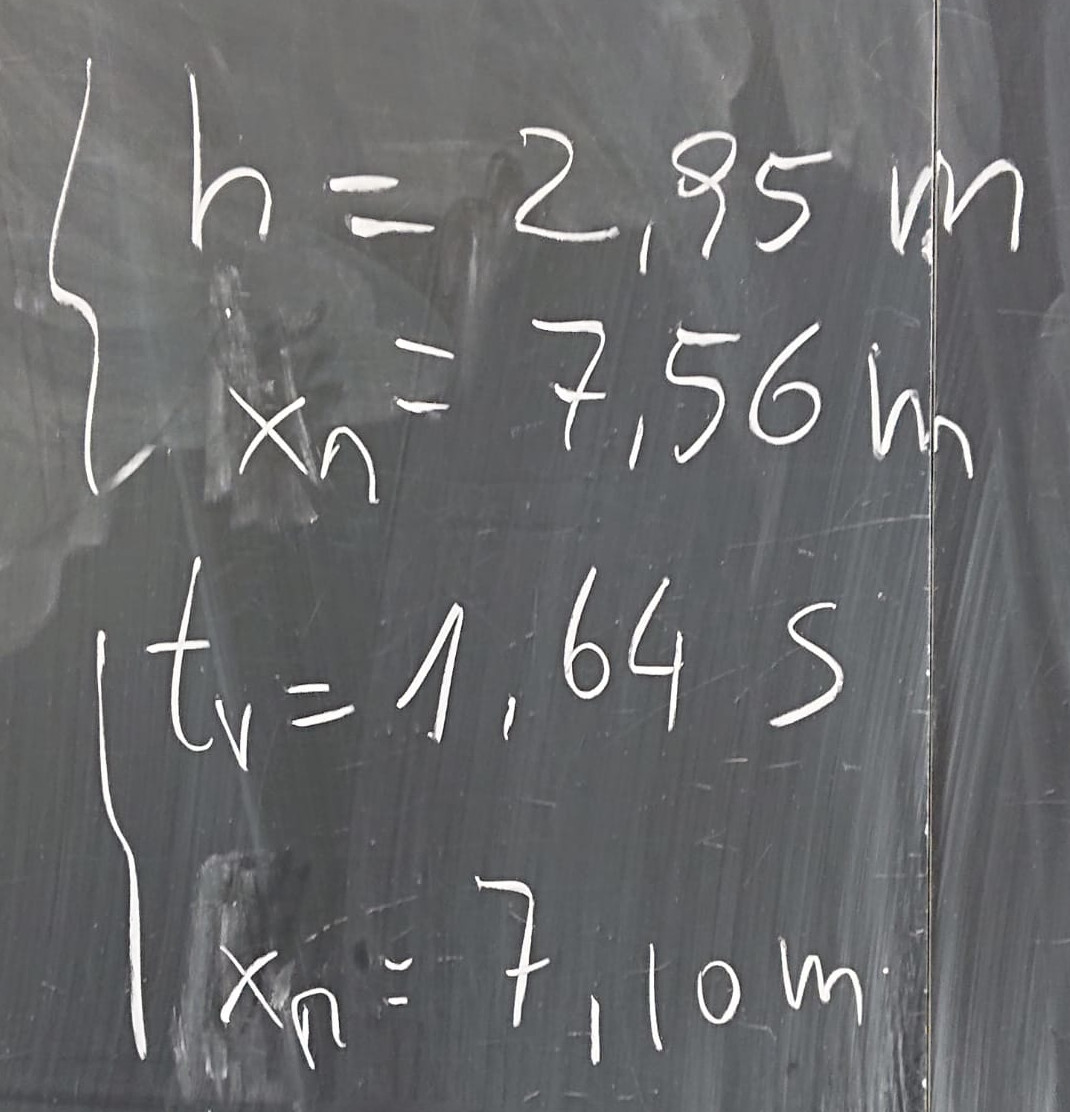 h = 2,95 m
xn = 7,56 m
tv = 1,64 s
xn = 7,10 m